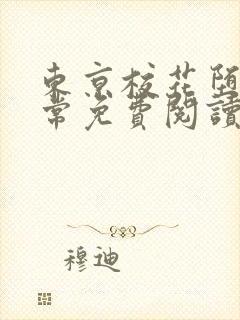 東京校花堕
常免費閱讀
穆迪